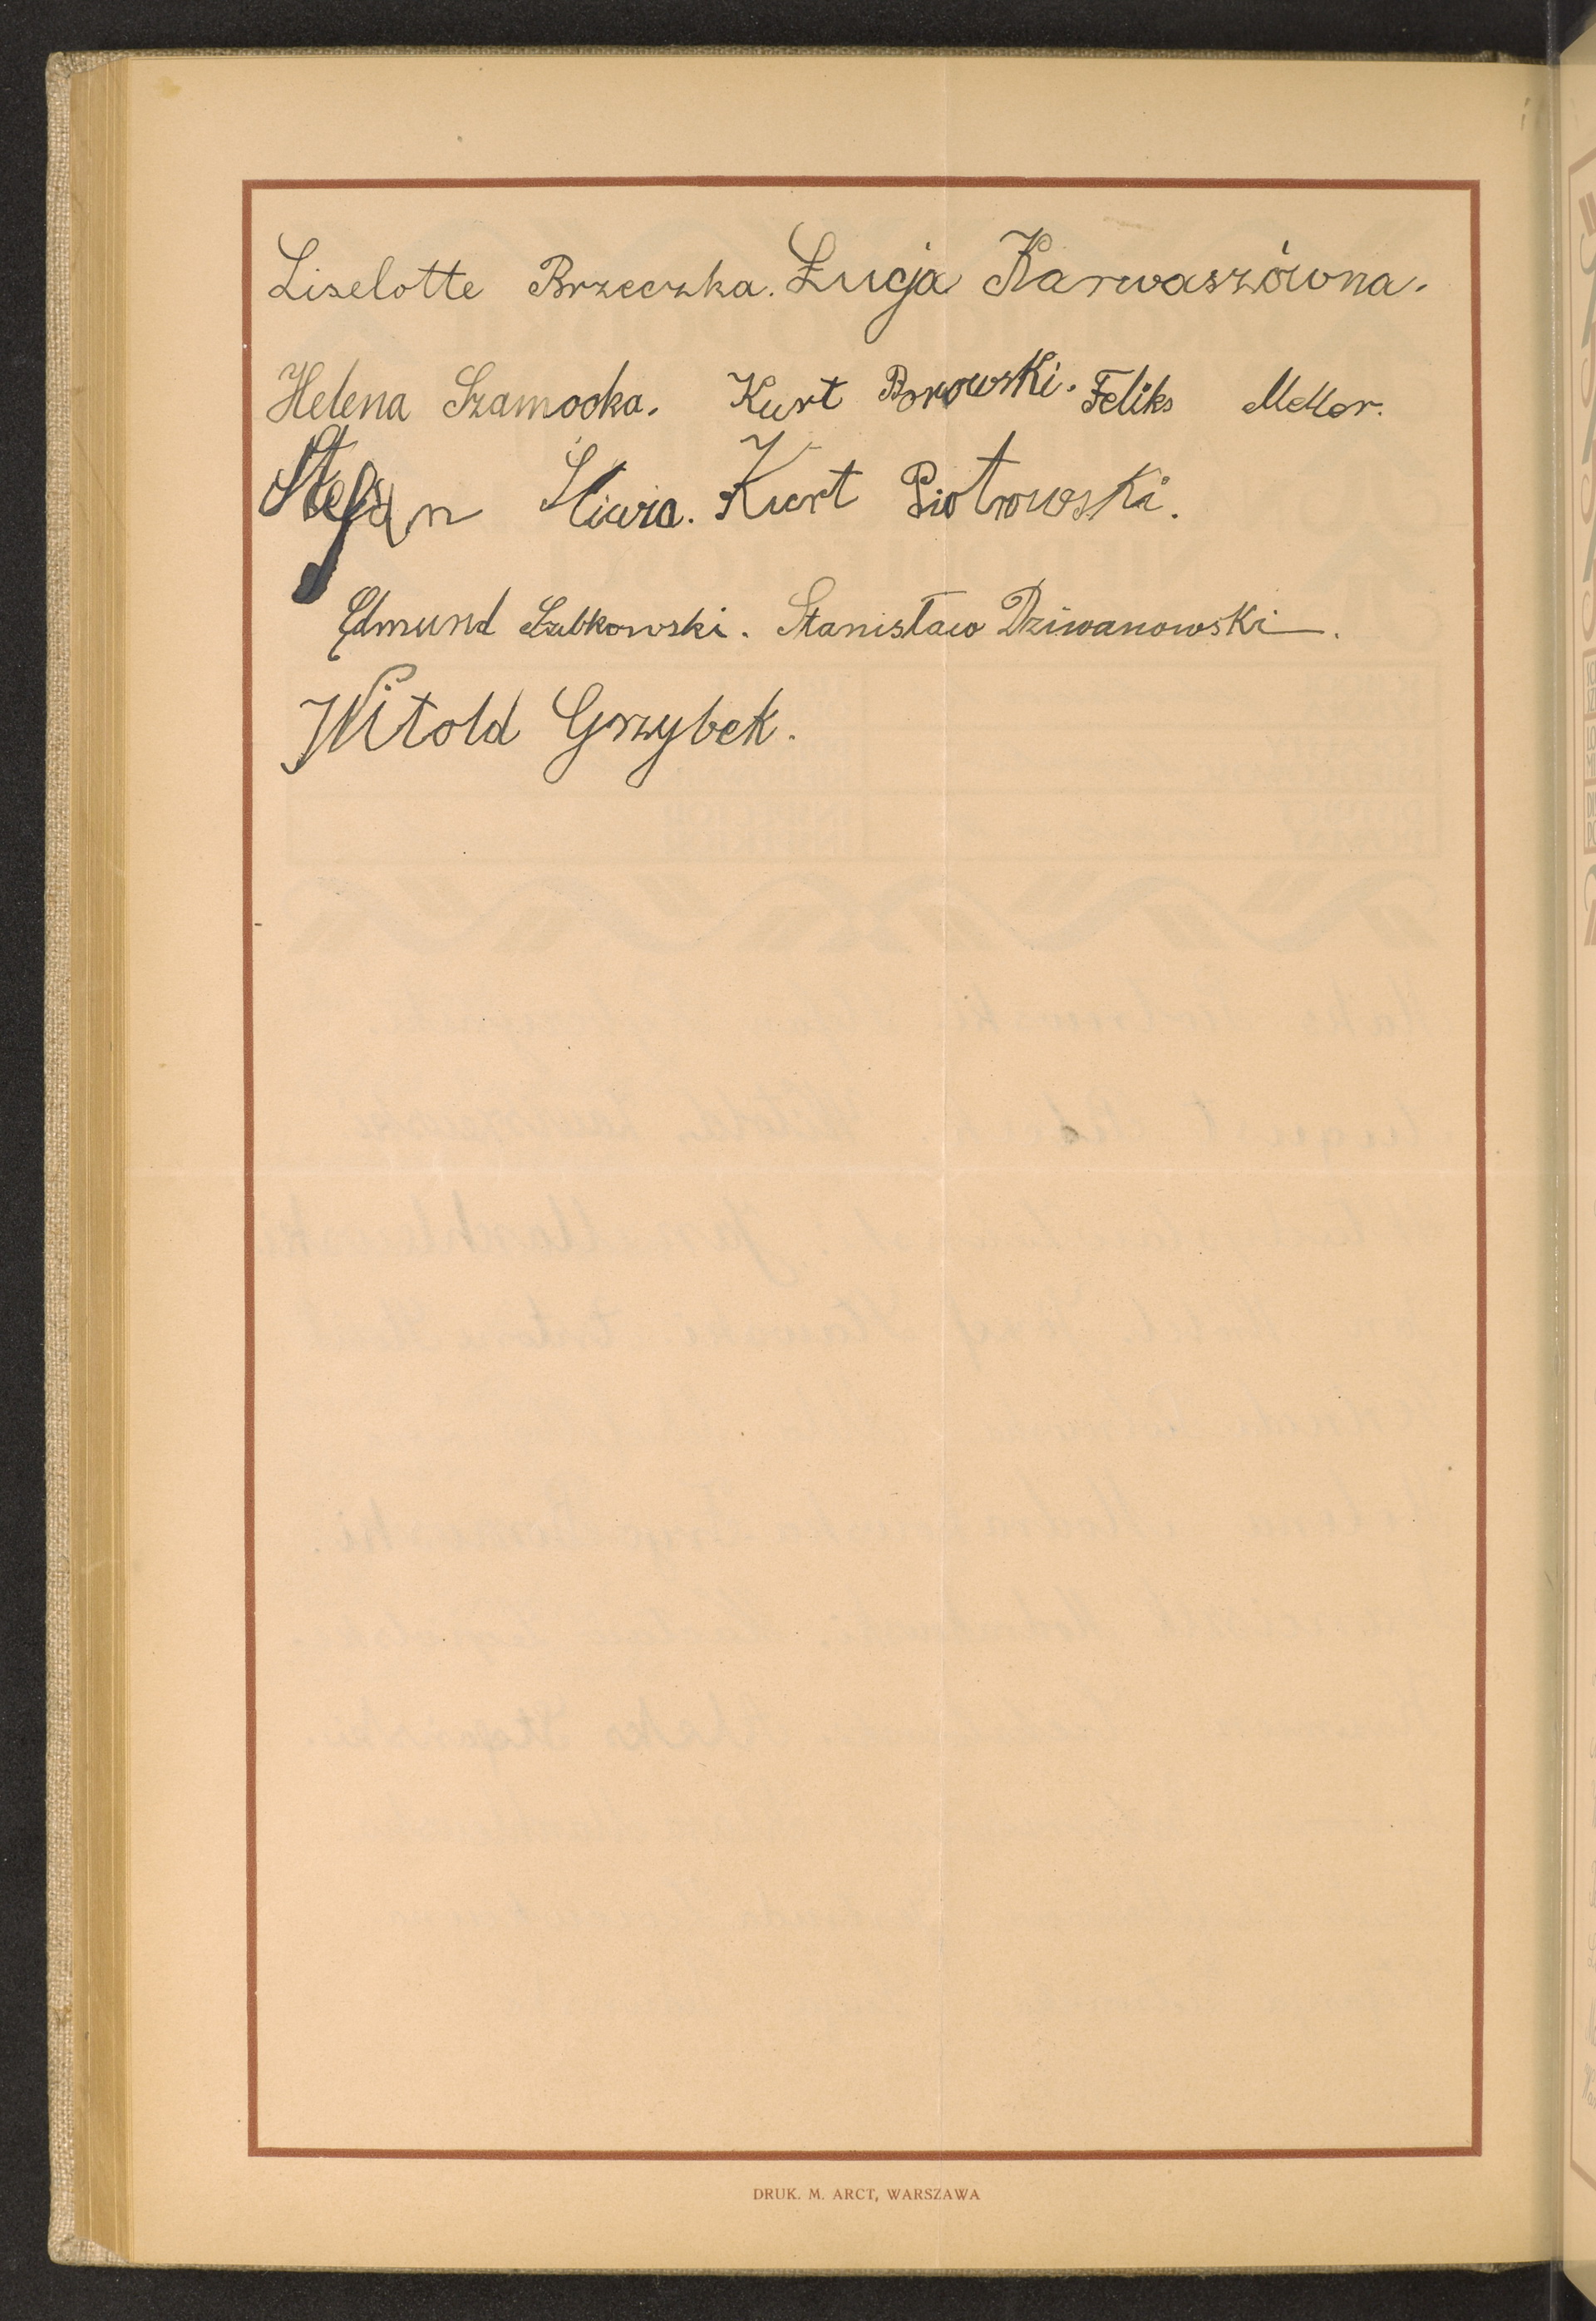 Liselotte Brzeczka. Łucja Karwaszówna.
Helena Szamocka. Kurt Borowski. Feliks Meller.
Stefan Śliwa. Kurt Piotrowski.
Edmund Szubkowski. Stanisław Dziwanowski.
Witold Grzybek.
DRUK. M. ARCT, WARSZAWA